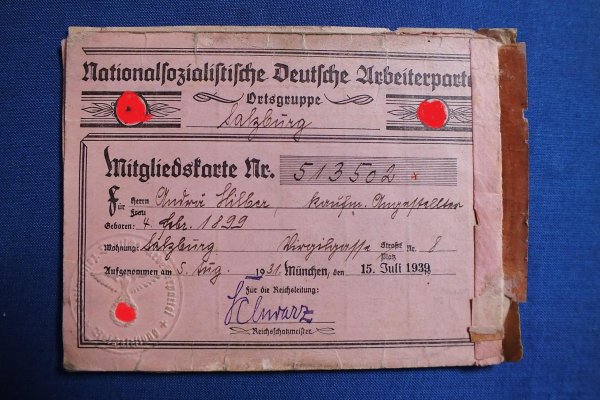 Nationalsozialistische Deutsche Arbeiterparte
Ortsgruppe
Salzburg
Mitgliedskarte Nr. 513502
Für Herrn Frau Andrä Hilber, kaufm. Angestellter
Geboren: 4. Feb. 1899
Wohnung: Salzburg Virgilgasse Straße Platz Nr. 8
Aufgenommen am 5. Aug. 1931 München, den 15. Juli 1939
Für die Reichsleitung:
Schwarz
Reichsschatzmeister